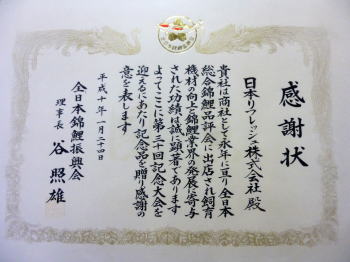 感謝状
日本リフレッシュ株式会社 殿
貴社は商社として永年に亘り全日本
総合錦鯉品評会に出店され飼育
機材の向上と錦鯉業界の発展に寄与
された功績は誠に顕著であります
よってここに第三十回記念大会を
迎えるにあたり記念品を贈り感謝の
意を表します
平成十年一月二十四日
全日本錦鯉振興会
理事長 谷照雄